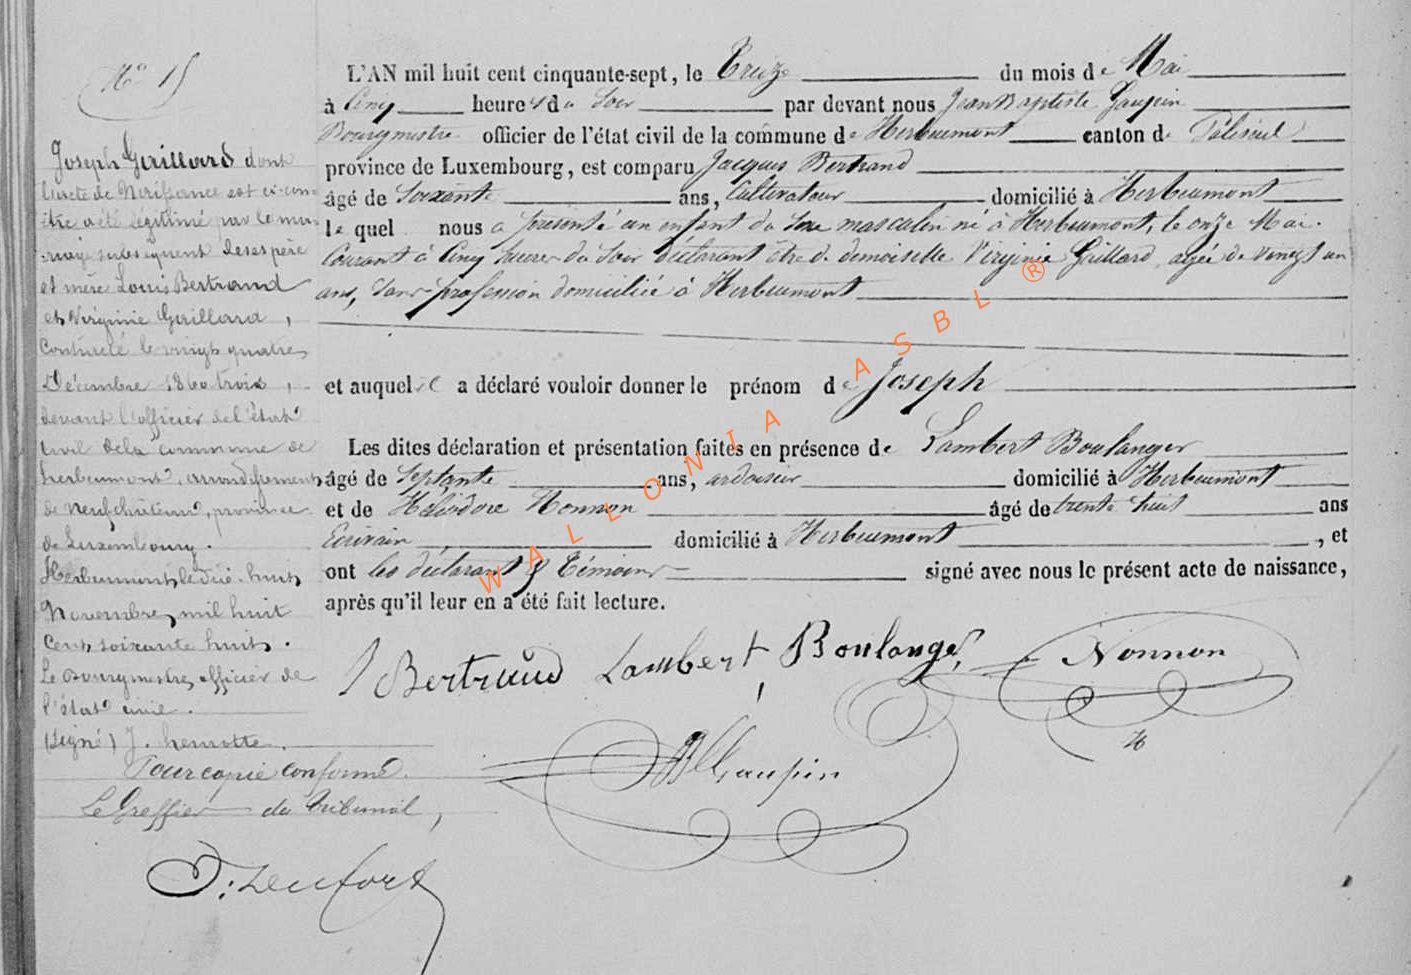 N° 15
Joseph Gaillard dont
l'acte de Naissance est ci-con-
tre a été légitimé par le ma-
riage subséquent de ses père
et mère Louis Bertrand
et Virginie Gaillard,
contracté le vingt quatre
Décembre 1860 trois,
devant l'officier de l'état
civil de la commune de
herbeumont, arrondissement
de Neufchâteau, province
de Luxembourg.
Herbeumont, le dix-huit
Novembre mil huit
cent soixante huit.
Le Bourgmestre, officier de
l'état civil.
(signé) J. henrotte.
Pour copie conforme.
Le Greffier du Tribunal,
L'AN mil huit cent cinquante-sept, le Treize du mois de Mai
à Cinq heures du Soir par devant nous Jean Baptiste Gaupin
Bourgmestre officier de l'état civil de la commune de Herbeumont canton de Paliseul
province de Luxembourg, est comparu Jacques Bertrand
âgé de Soixante ans, Cultivateur domicilié à Herbeumont
le quel nous a présenté un enfant du Sexe masculin né à Herbeumont, le onze Mai
Courant à Cinq heures du Soir déclarant être de demoiselle Virginie Gillard, agée de vingt un
ans, Sans profession domiciliée à Herbeumont
et auquel il a déclaré vouloir donner le prénom de Joseph
Les dites déclaration et présentation faites en présence de Lambert Boulanger
âgé de Septante ans, ardoisier domicilié à Herbeumont
et de Héliodore Nonnon âgé de trente huit ans
Ecrivain domicilié à Herbeumont, et
ont les déclarant & Témoins signé avec nous le présent acte de naissance,
après qu'il leur en a été fait lecture.
J Bertrand Lambert Boulanger Nonnon
JB Gaupin
WALLONIA ASBL ®